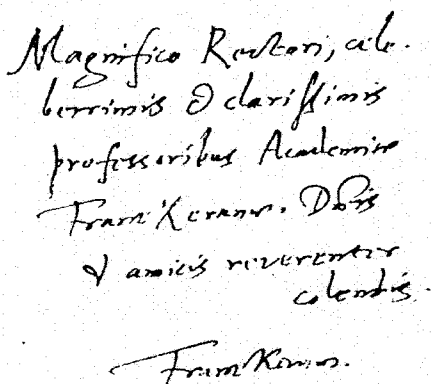 Magnifico Rectori, cele-
berrimis & clarissimis
professoribus Academiæ
Franekeranæ. Dnis
& amicis reverenter
colendis.
Franekeram.